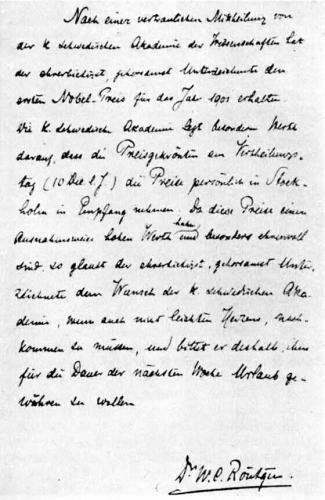 Nach einer vertraulichen Mittheilung von
der K schwedischen Akademie der Wissenschaften hat
der ehrerbietigst, gehorsamst Unterzeichnete den
ersten Nobel-Preis für das Jahr 1901 erhalten.
Die K. schwedische Akademie legt besondern Werth
darauf, dass die Preisgekrönten am Vertheilungs-
tag (10 Dec. l. J.) die Preise persönlich in Stock-
holm in Empfang nehmen. Da diese Preise einen
Ausnahmsweise hohen Werth haben und besonders ehrenvoll
sind, so glaubt der ehrerbietigst, gehorsamst Unter-
zeichnete dem Wunsch der K. schwedischen Aka-
demie, wenn auch nicht leichten Herzens, nach-
kommen zu müssen, und bittet er deshalb, ihm
für die Dauer der nächsten Woche Urlaub ge-
währen zu wollen
Dr W. C. Röntgen